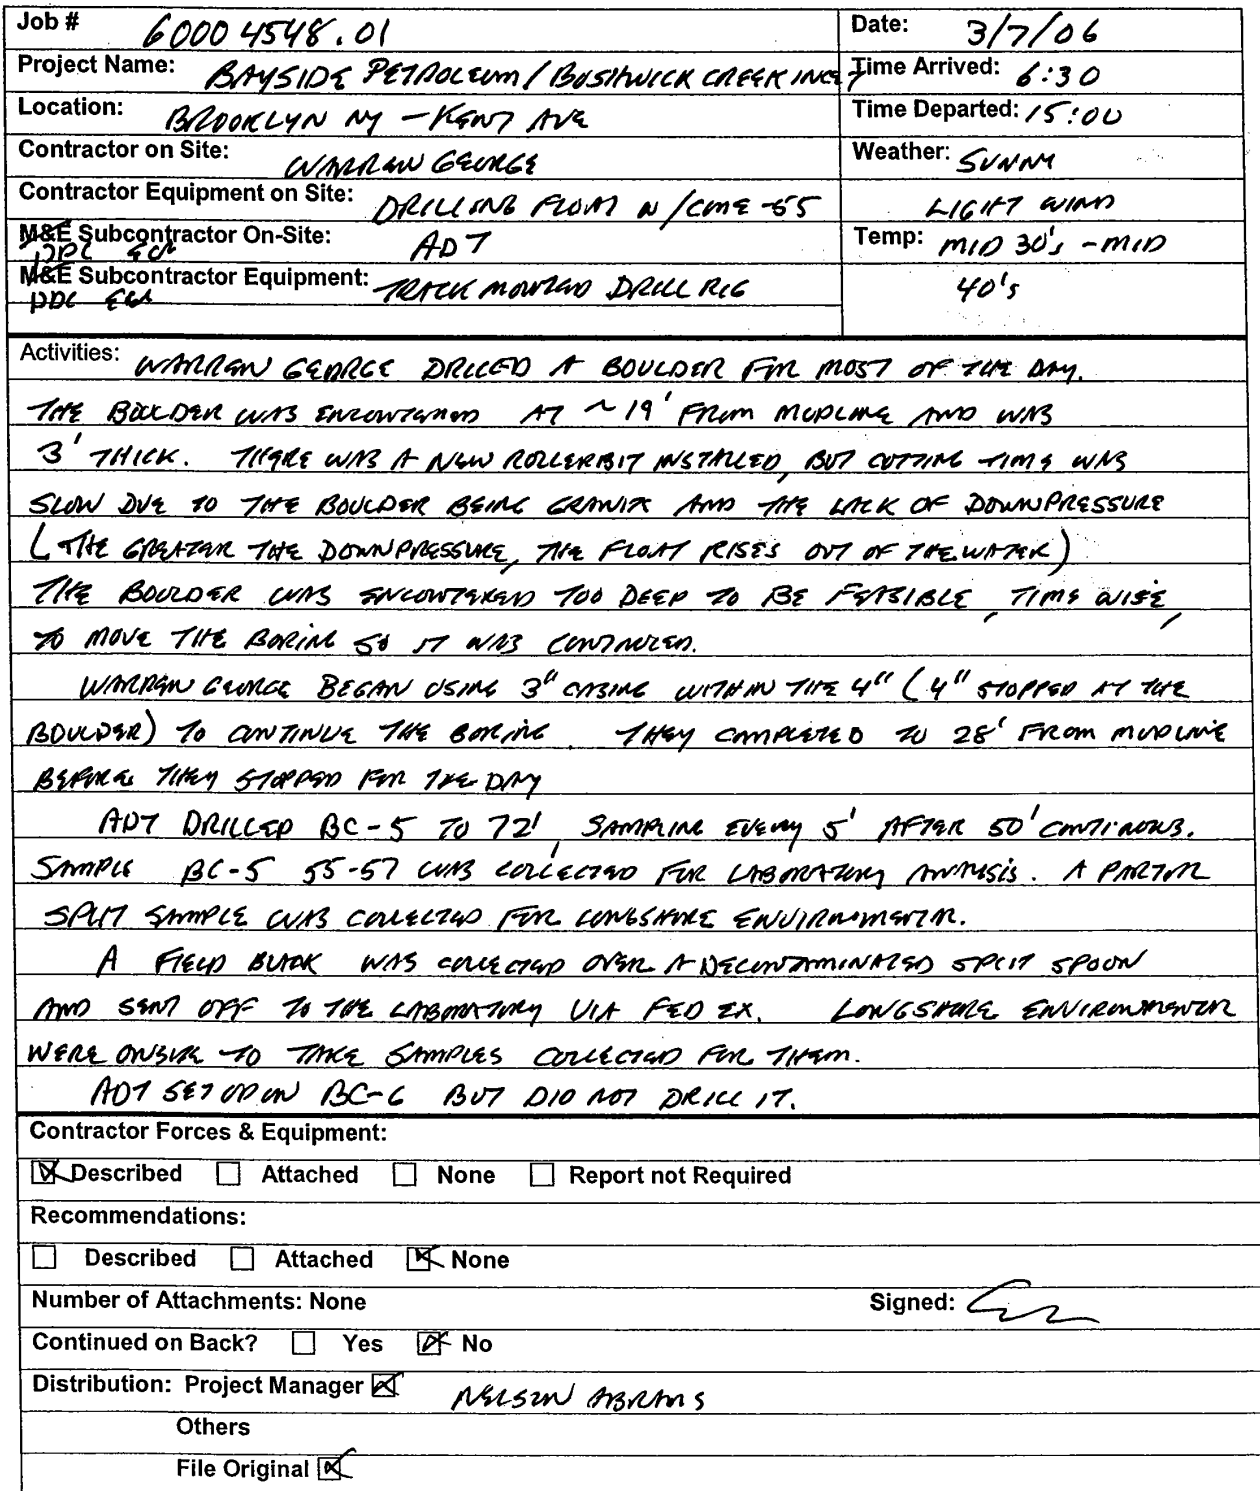 Job # 60004548.01 Date: 3/7/06
Project Name: BAYSIDE PETROLEUM / BUSHWICK CREEK INLET Time Arrived: 6:30
Location: BROOKLYN NY - KENT AVE Time Departed: 15:00
Contractor on Site: WARREN GEORGE Weather: SUNNY
Contractor Equipment on Site: DRILLING FLOAT W/CME-55 LIGHT WIND
M&E Subcontractor On-Site: ADT Temp: MID 30's - MID
M&E Subcontractor Equipment: TRACK MOUNTED DRILL RIG 40's
Activities: WARREN GEORGE DRILLED A BOULDER FOR MOST OF THE DAY.
THE BOULDER WAS ENCOUNTERED AT ~19' FROM MUDLINE AND WAS
3' THICK. THERE WAS A NEW ROLLERBIT INSTALLED, BUT CUTTING TIME WAS
SLOW DUE TO THE BOULDER BEING GRANITE AND THE LACK OF DOWNPRESSURE
(THE GREATER THE DOWNPRESSURE, THE FLOAT RISES OUT OF THE WATER)
THE BOULDER WAS ENCOUNTERED TOO DEEP TO BE FEASIBLE, TIME WISE,
TO MOVE THE BORING SO IT WAS CONTINUED.
WARREN GEORGE BEGAN USING 3" CASING WITHIN THE 4" (4" STOPPED AT THE
BOULDER) TO CONTINUE THE BORING. THEY COMPLETED TO 28' FROM MUDLINE
BEFORE THEY STOPPED FOR THE DAY
ADT DRILLED BC-5 TO 72', SAMPLING EVERY 5' AFTER 50' CONTINUOUS.
SAMPLE BC-5 55-57 WAS COLLECTED FOR LABORATORY ANALYSIS. A
SPLIT SAMPLE WAS COLLECTED FOR LONGSHORE ENVIRONMENTAL.
A FIELD BLANK WAS COLLECTED OVER A DECONTAMINATED SPLIT SPOON
AND SENT OFF TO THE LABORATORY VIA FED EX. LONGSHORE ENVIRONMENTAL
WERE ONSITE TO TAKE SAMPLES COLLECTED FOR THEM.
ADT SET UP ON BC-6 BUT DID NOT DRILL IT.
Contractor Forces & Equipment:
Described Attached None Report not Required
Recommendations:
Described Attached None
Number of Attachments: None Signed:
Continued on Back? Yes No
Distribution: Project Manager NELSON ABRAMS
Others
File Original